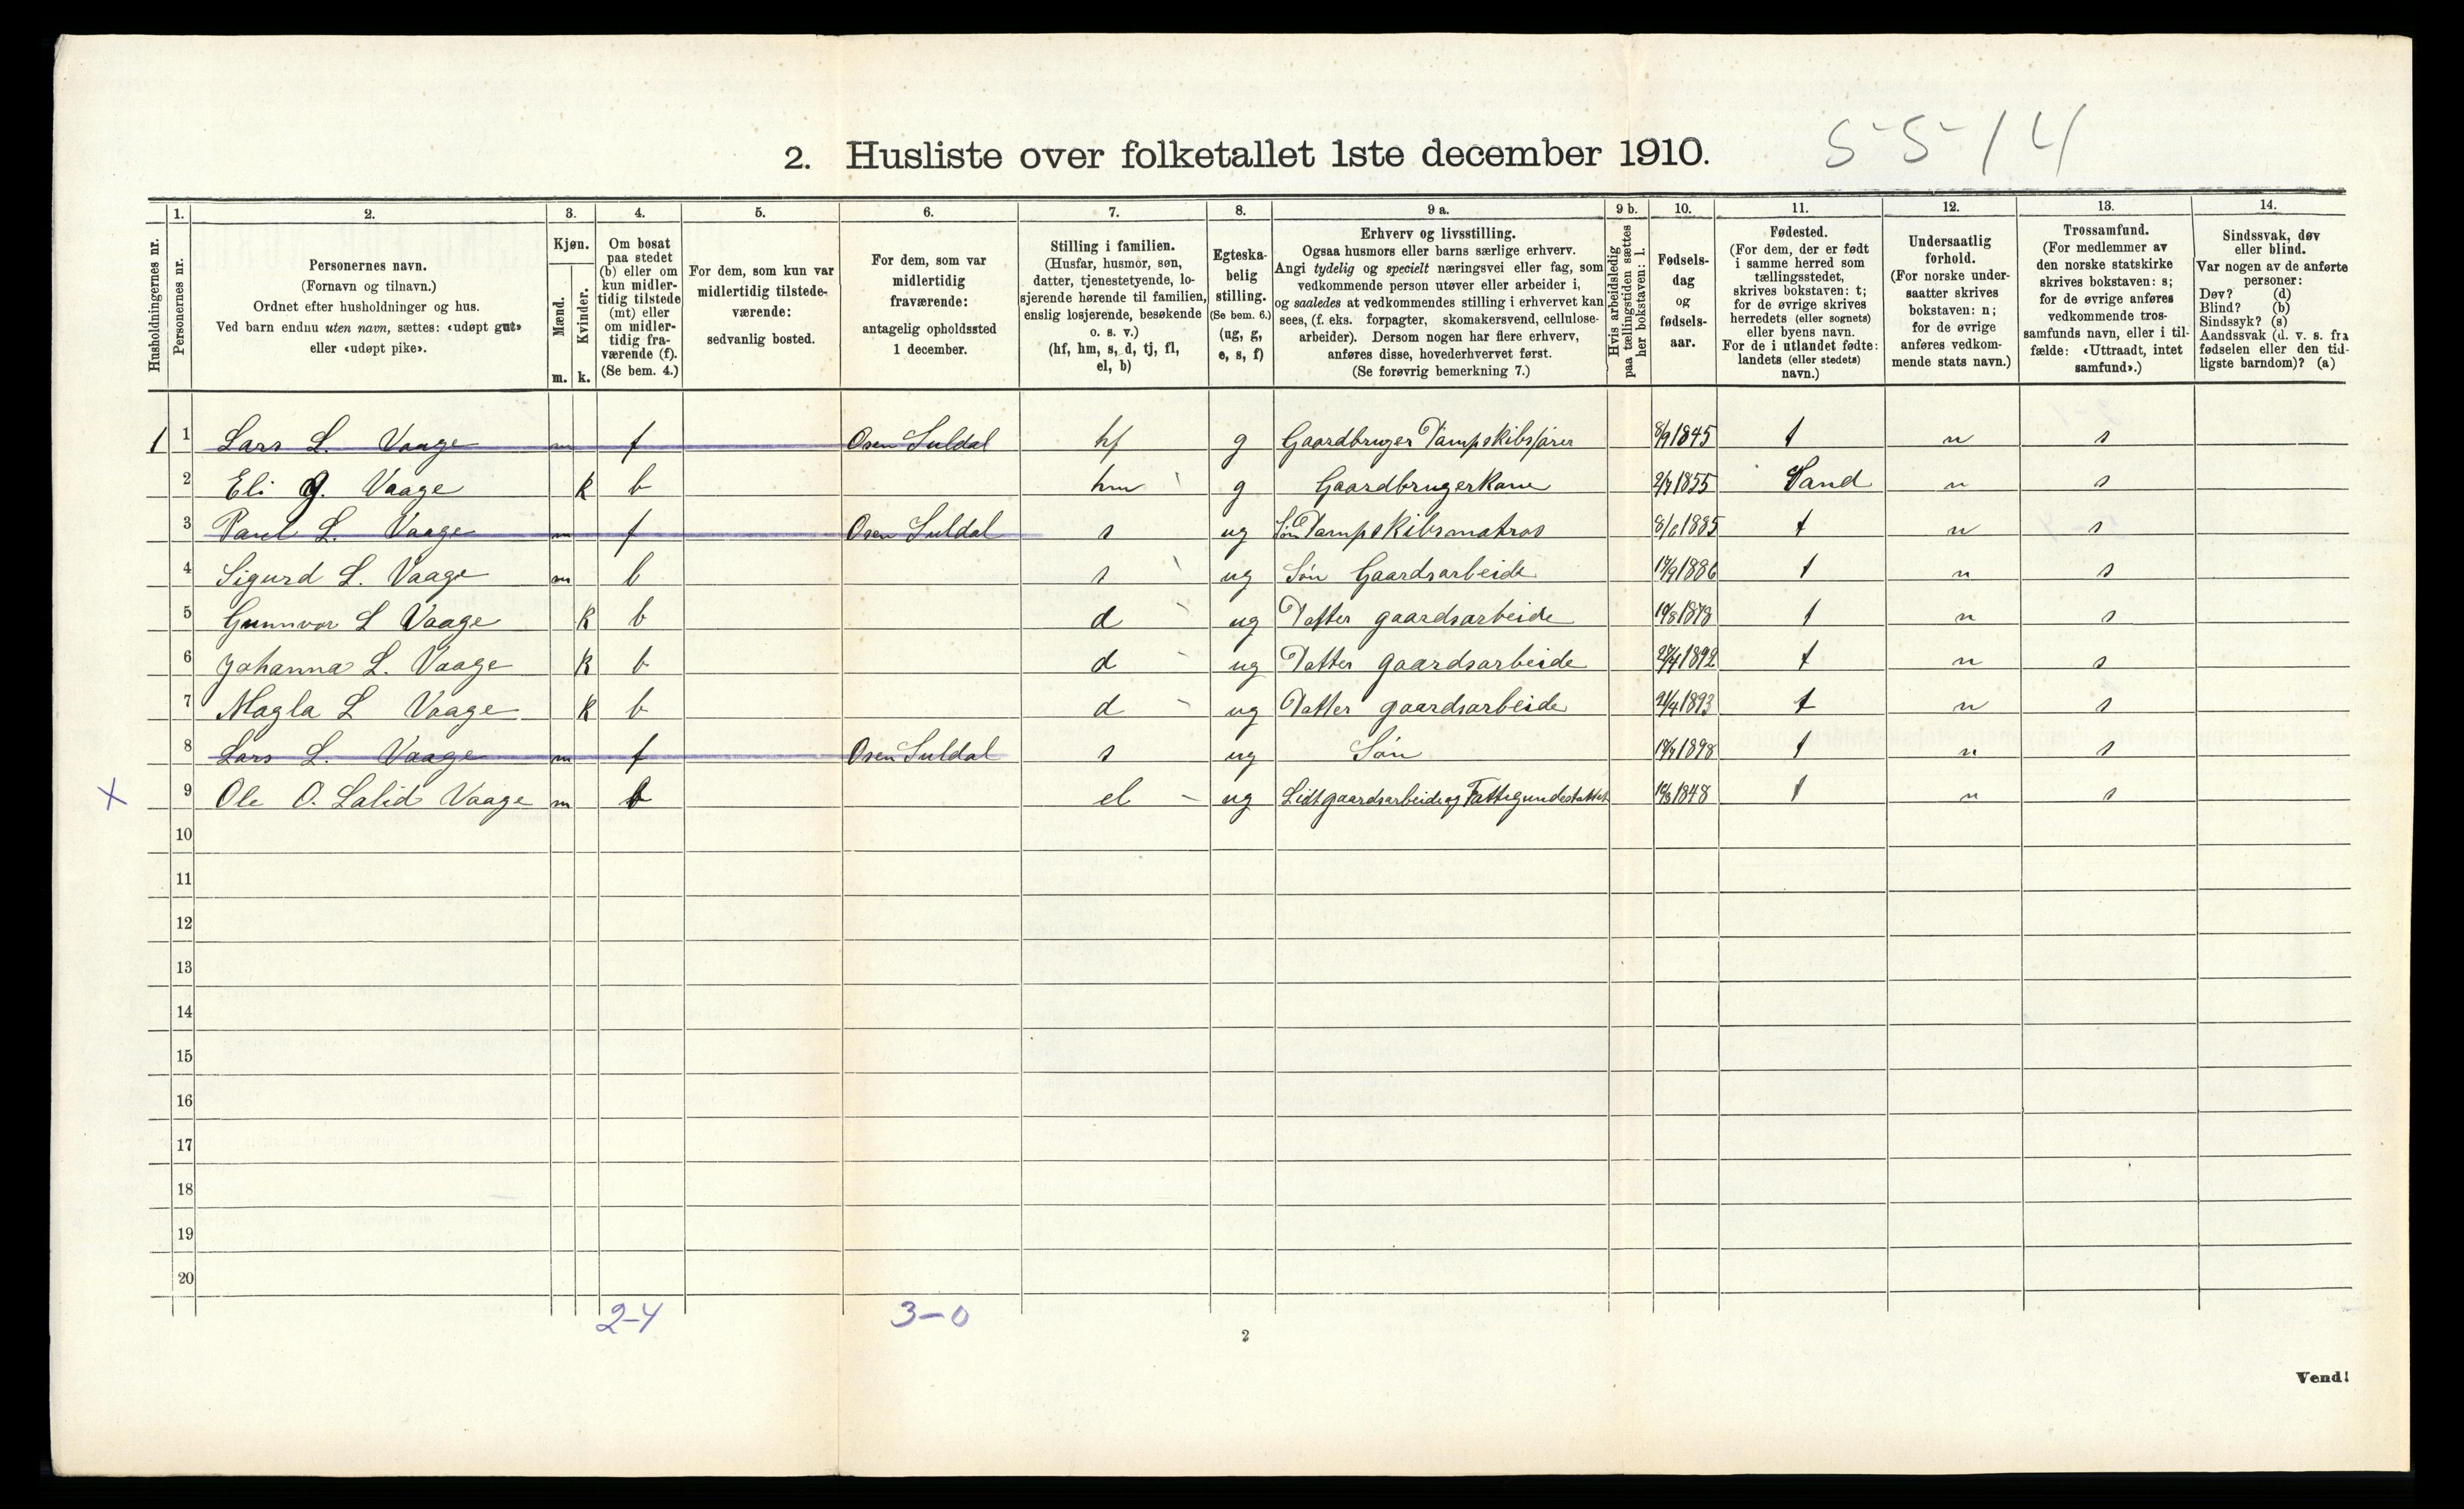 2. Husliste over folketallet 1ste december 1910. 5-5-14
Husholdningernes nr.
1. Personernes nr.
2. Personernes navn. (Fornavn og tilnavn.) Ordnet efter husholdninger og hus. Ved barn endnu uten navn, sættes: «udøpt gut» eller «udøpt pike».
3. Kjøn. Mænd. m. Kvinder. k.
4. Om bosat paa stedet (b) eller om kun midler-tidig tilstede (mt) eller om midler-tidig fra-værende (f). (Se bem. 4.)
5. For dem, som kun var midlertidig tilstede-værende: sedvanlig bosted.
6. For dem, som var midlertidig fraværende: antagelig opholdssted 1 december.
7. Stilling i familien. (Husfar, husmor, søn, datter, tjenestetyende, lo-sjerende hørende til familien, enslig losjerende, besøkende o. s. v.) (hf, hm, s, d, tj, fl, el, b)
8. Egteska-belig stilling. (Se bem. 6.) (ug, g, e, s, f)
9 a. Erhverv og livsstilling. Ogsaa husmors eller barns særlige erhverv. Angi tydelig og specielt næringsvei eller fag, som vedkommende person utøver eller arbeider i, og saaledes at vedkommendes stilling i erhvervet kan sees, (f. eks. forpagter, skomakersvend, cellulose-arbeider). Dersom nogen har flere erhverv, anføres disse, hovederhvervet først. (Se forøvrig bemerkning 7.)
9 b. Hvis arbeidsledig paa tællingstiden sættes her bokstaven: l.
10. Fødsels-dag og fødsels-aar.
11. Fødested. (For dem, der er født i samme herred som tællingsstedet, skrives bokstaven: t; for de øvrige skrives herredets (eller sognets) eller byens navn. For de i utlandet fødte: landets (eller stedets) navn.)
12. Undersaatlig forhold. (For norske under-saatter skrives bokstaven: n; for de øvrige anføres vedkom-mende stats navn.)
13. Trossamfund. (For medlemmer av den norske statskirke skrives bokstaven: s; for de øvrige anføres vedkommende tros-samfunds navn, eller i til-fælde: «Uttraadt, intet samfund».)
14. Sindssvak, døv eller blind. Var nogen av de anførte personer: Døv? (d) Blind? (b) Sindssyk? (s) Aandssvak (d. v. s. fra fødselen eller den tid-ligste barndom)? (a)
1 1 Lars L. Vaage m f Osen Suldal hf g Gaardbruger Dampskibsfører 8/9 1845 t n s
2 Eli G. Vaage k b hm g Gaardbrugerkone 2/7 1855 Sand n s
3 Paul L. Vaage m f Osen Suldal s ug Søn Dampskibsmatros 8/6 1885 t n s
4 Sigurd L. Vaage m b s ug Søn Gaardsarbeide 17/9 1886 t n s
5 Gunnvor L Vaage k b d ug Datter gaardsarbeide 10/8 1878 t n s
6 Johanna L. Vaage k b d ug Datter gaardsarbeide 1892 t n s
7 Magla L Vaage k b d ug Datter gaardsarbeide 21/4 1893 t n s
8 Lars L. Vaage m f Osen Suldal s ug Søn 17/7 1898 t n s
X 9 Ole O. Lalid Vaage m b el ug Lidt gaardsarbeide og Fattigunderstøttet 10/3 1848 t n s
10
11
12
13
14
15
16
17
18
19
20
2-4 3-0
2
Vend!